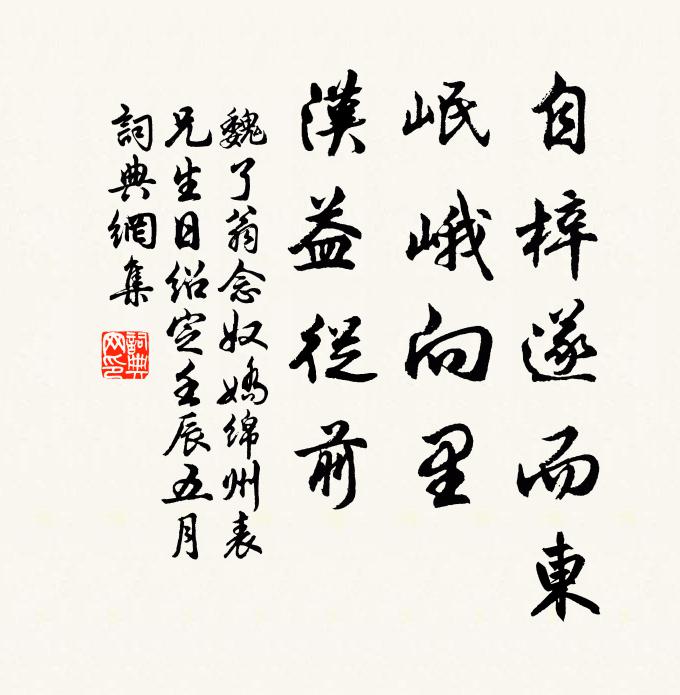 自梓遂而東
岷峨向里
漢益從前
魏了翁念奴嬌綿州表
兄生日紹定壬辰五月
詞典網集
詞典
网印